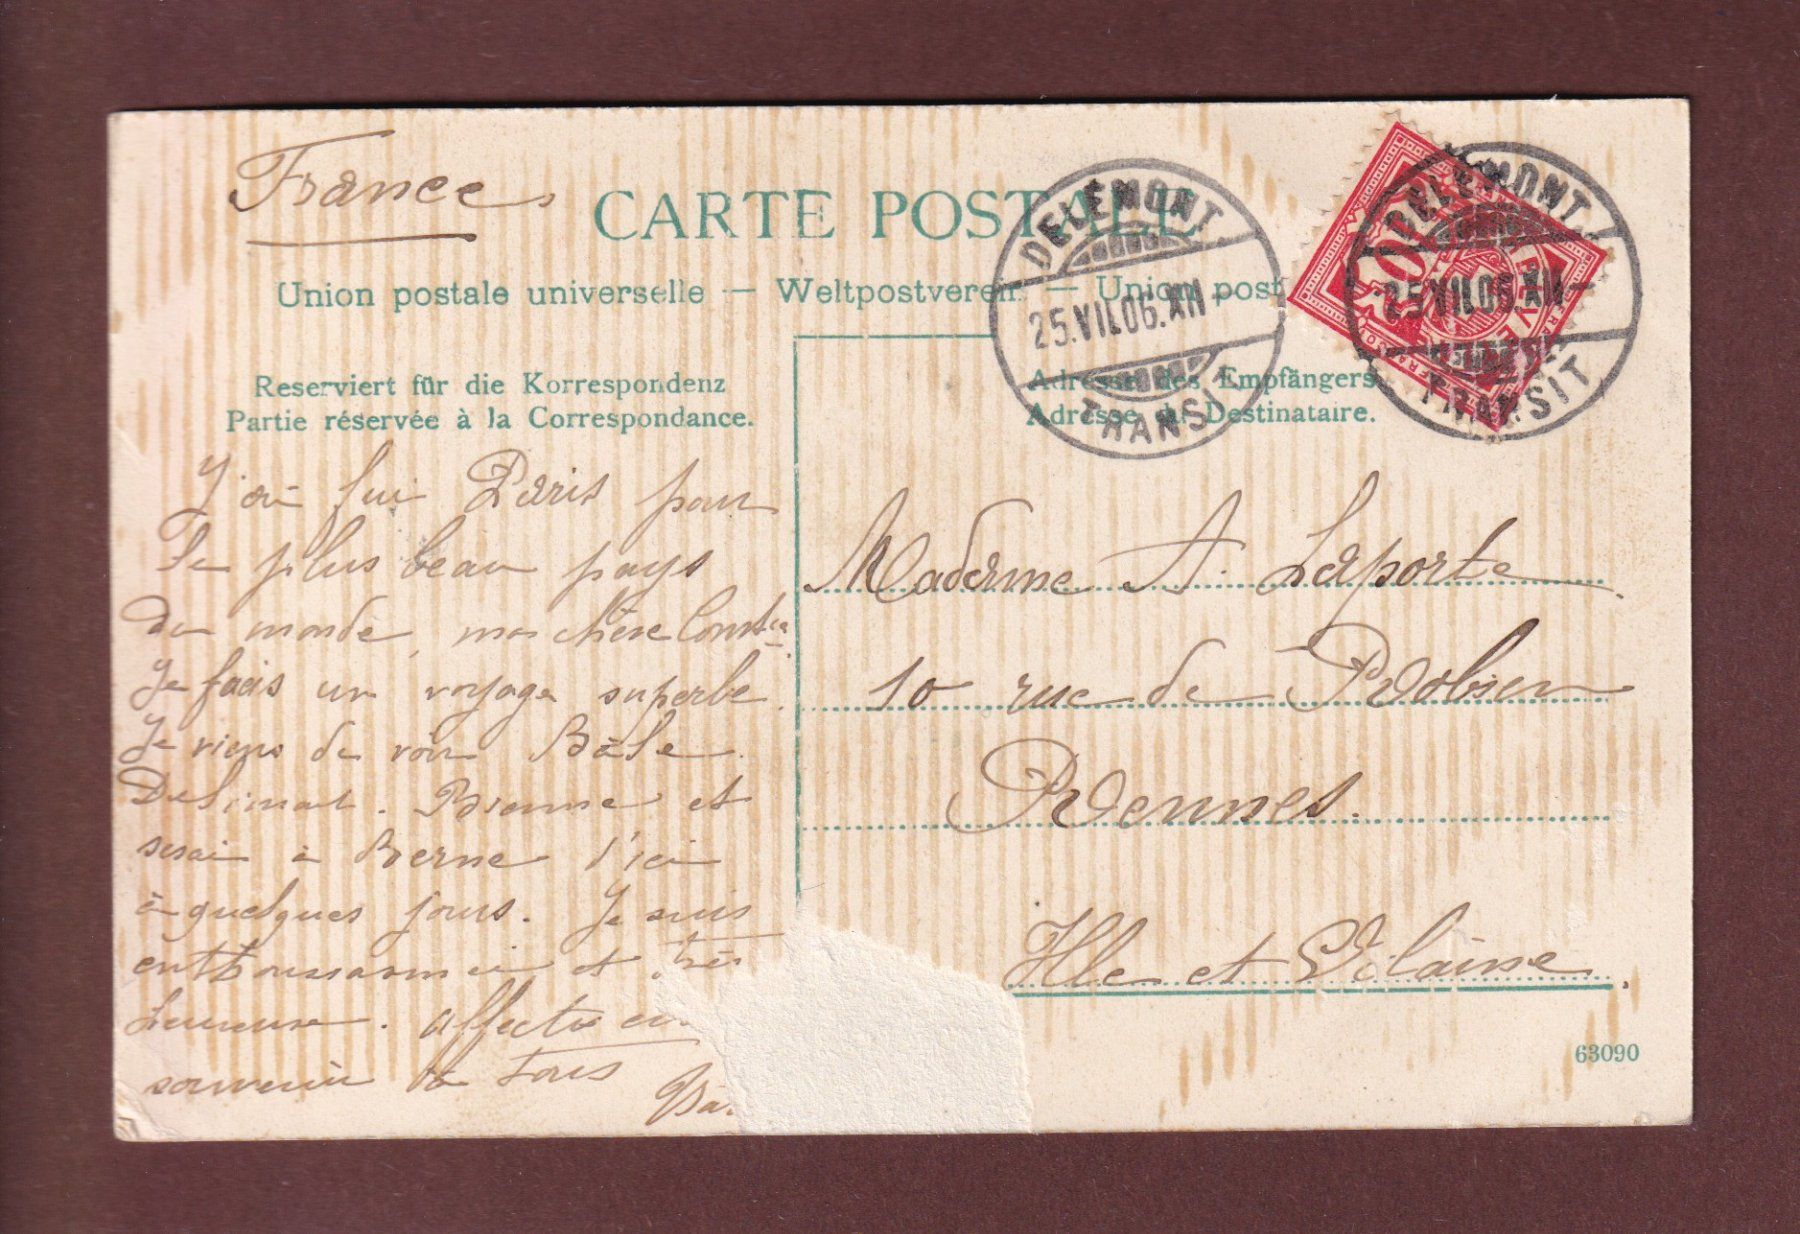 France.
CARTE POSTALE
Union postale universelle — Weltpostverein — Union post
Reserviert für die Korrespondenz
Partie réservée à la Correspondance.
Adresse des Empfängers
Adresse du Destinataire.
DELÉMONT
25.VII.06.XII-
TRANSIT
DELÉMONT
25.VII.06.XII-
TRANSIT
10
HELVE
FRANCO
J'ai fui Paris pour
le plus beau pays
du monde, ma chère
Je fais un voyage superbe.
Je viens de voir Bâle.
Delémont. Bienne et
serai à Berne d'ici
à quelques jours. Je suis
enthousiasmée et très
heureuse. affectueux
souvenir à tous
Madame A. Laporte.
10 rue de Robien
Rennes.
Ille et Vilaine.
63090